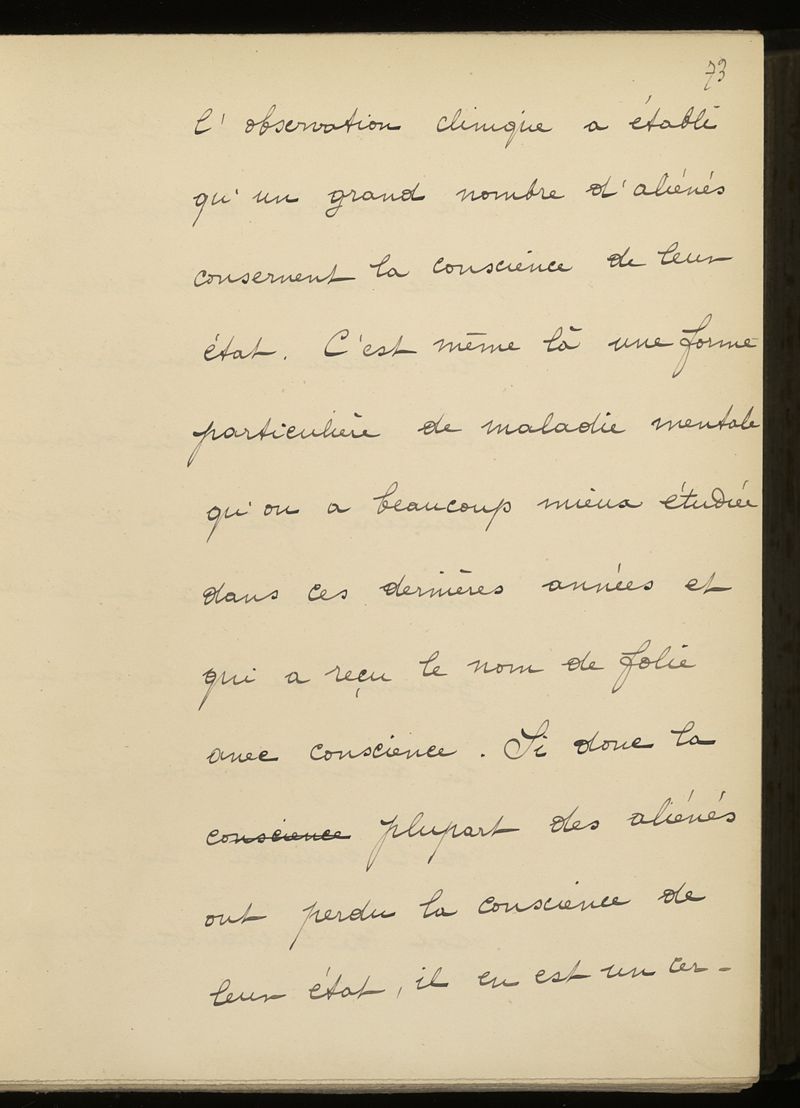 73
l'observation clinique a établi
qu'un grand nombre d'aliénés
conservent la conscience de leur
état. C'est même là une forme
particulière de maladie mentale
qu'on a beaucoup mieux étudiée
dans ces dernières années et
qui a reçu le nom de folie
avec conscience. Si donc la
conscience plupart des aliénés
ont perdu la conscience de
leur état, il en est un cer-